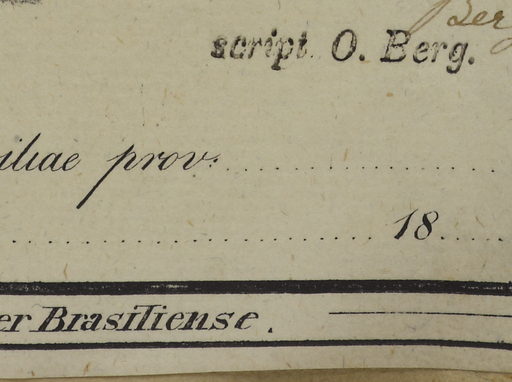 Berg
script. O. Berg.
iliae prov:
18
er Brasiliense.